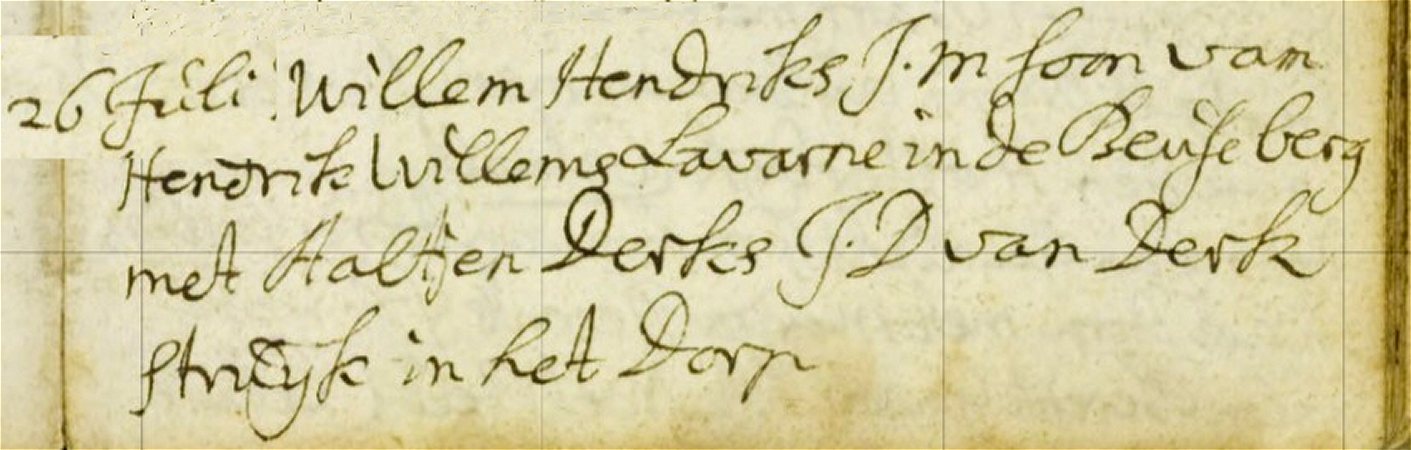 26 Juli Willem Hendriks J.M soon van
Hendrik Willems Lavarne in de Beuseberg
met Aaltjen Derks J.D van Derk
Struÿk in het Dorp